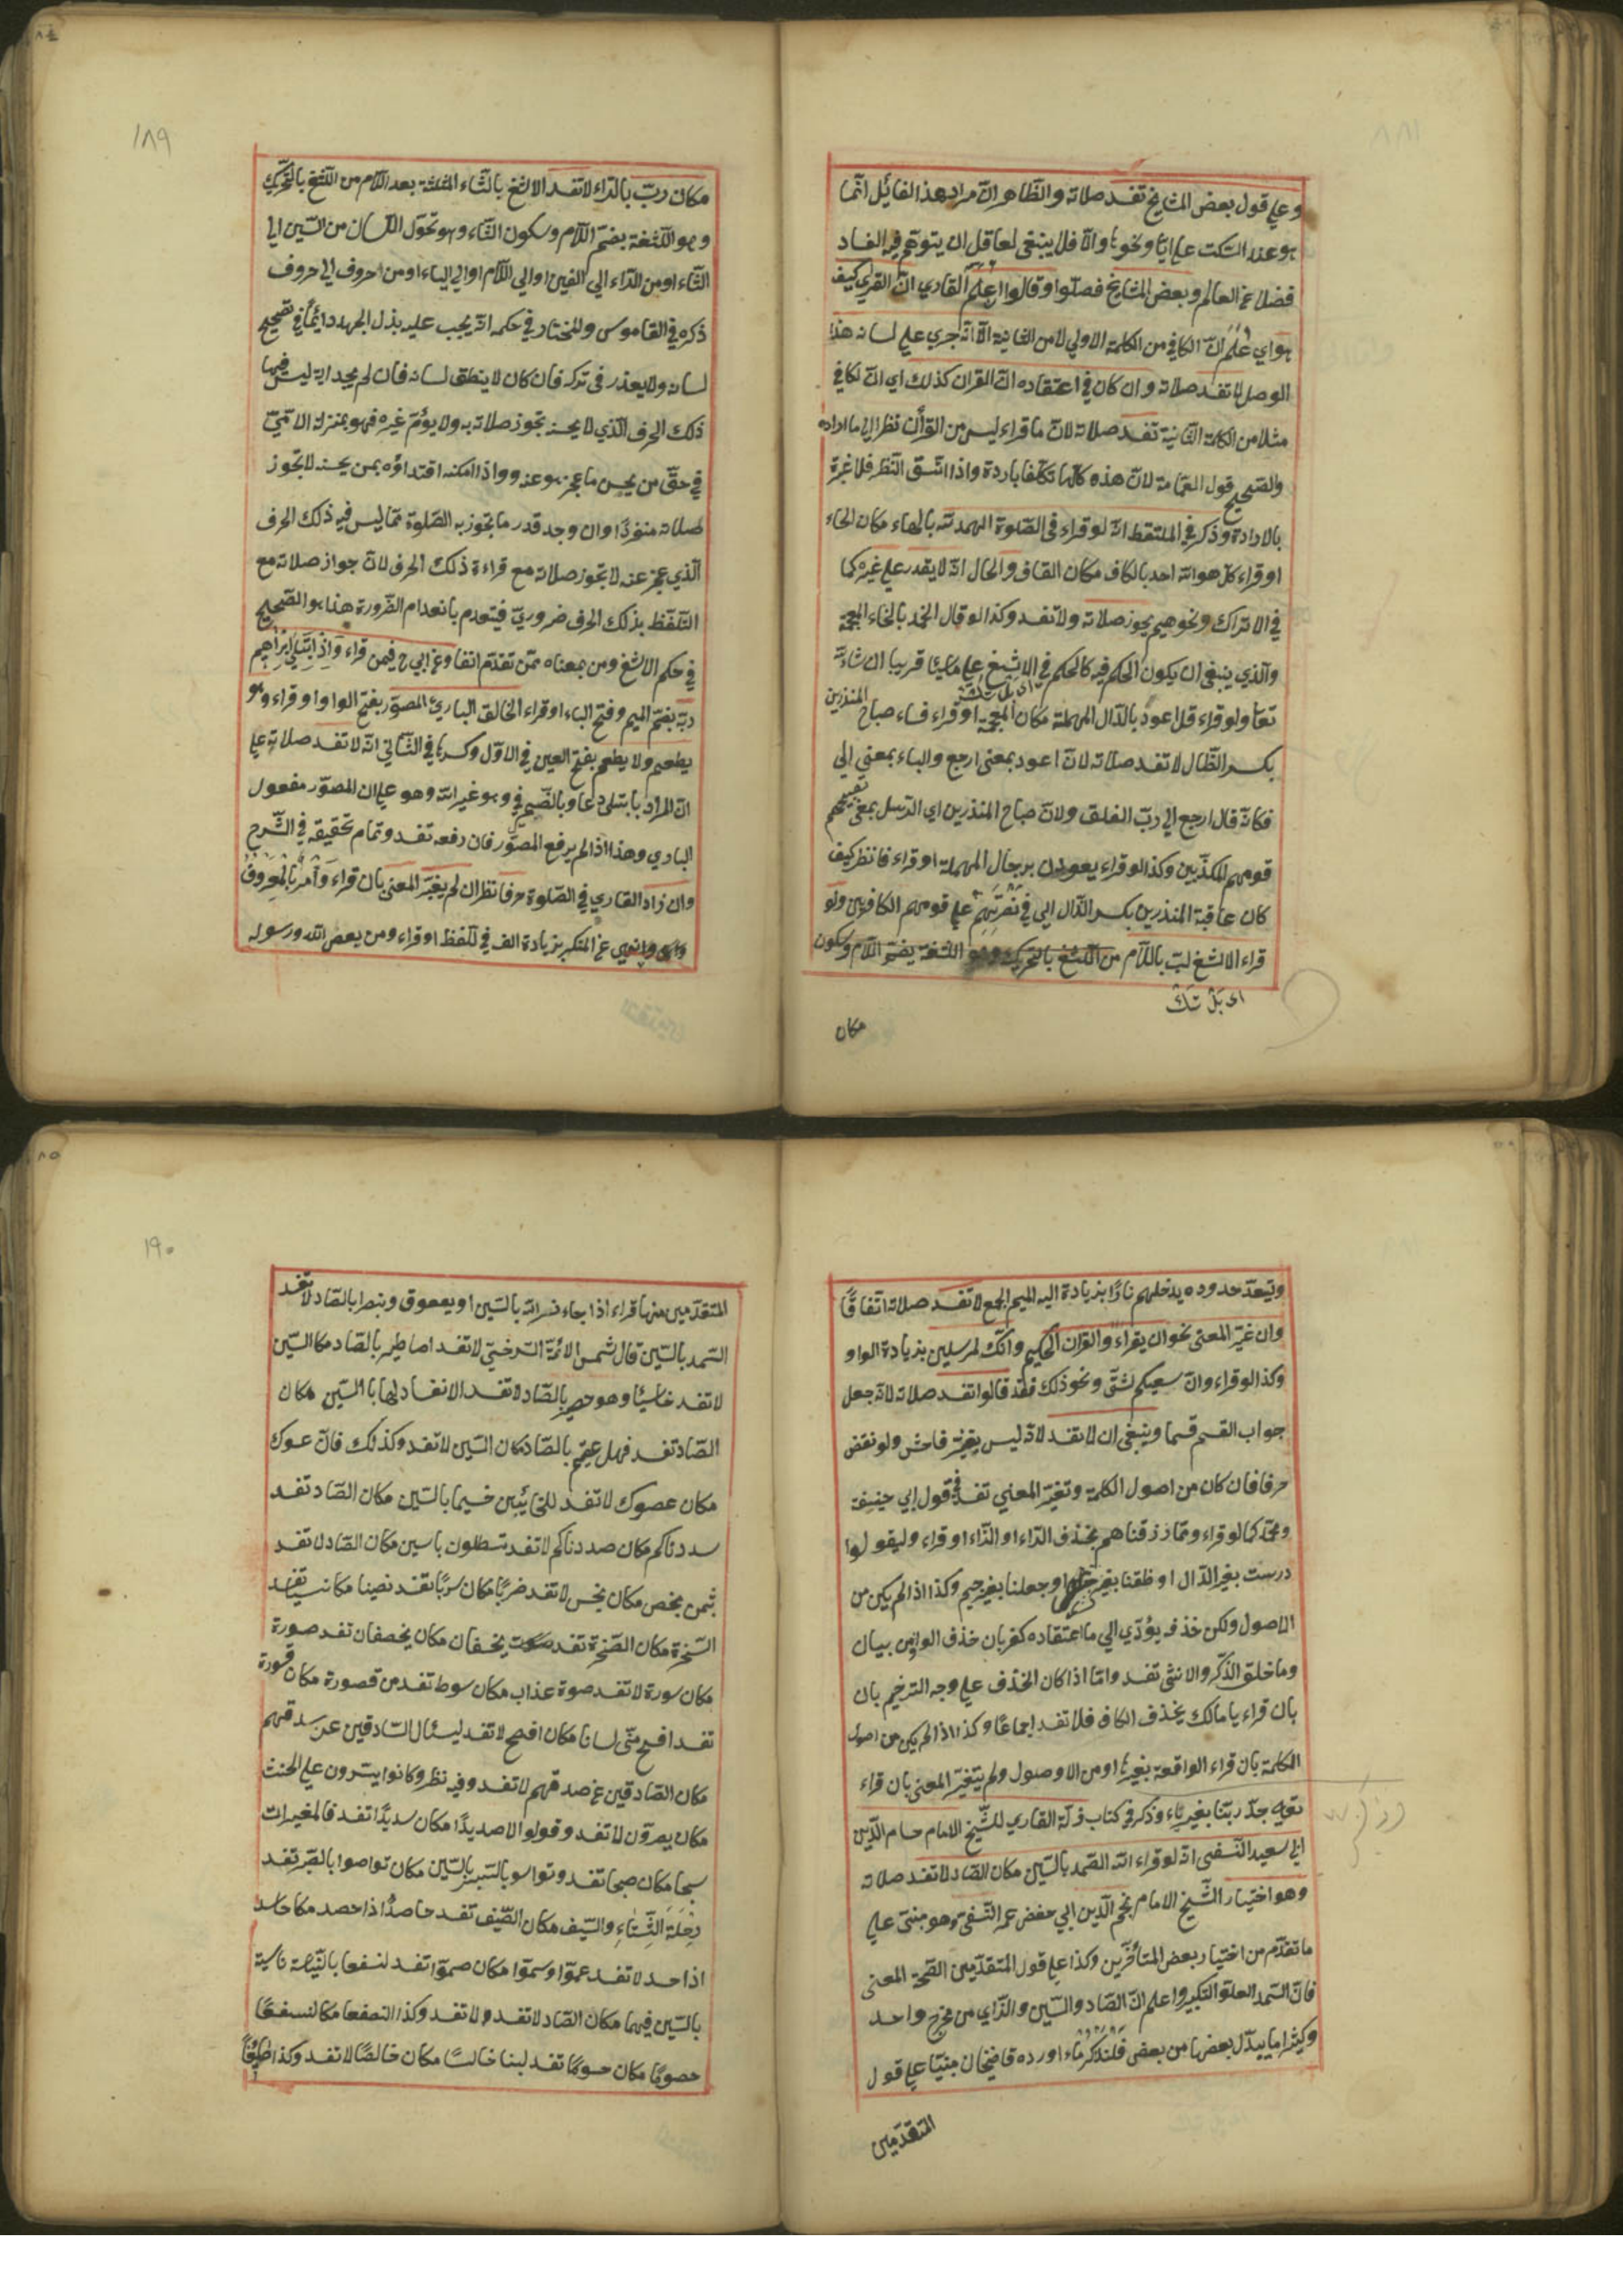 وعلي قول بعض المشايخ تفسد صلاته والظاهر انّ مراد هذا القائل انّما
هو عند السّكت علي ايّا ونحوها والّا فلا ينبغي لعاقل ان يتوهّم فيه الفساد
فضلا عن العالم وبعض المشايخ فصلوا وقالوا ان علم القاري انّ القرآن كيف
هو اي علم انّ الكاف من الكلمة الاولي لا من الثانية الّا انّه جري علي لسانه هذا
الوصل لا تفسد صلاته وان كان في اعتقاده انّ القران كذلك اي انّ الكاف
مثلا من الكلمة الثّانية تفسد صلاته لانّ ما قراء ليس من القرآن نظرا الي ما اراده
والصّحيح قول العامّة لانّ هذه كلّها تكلّفا باردة واذا اتّسق النّظم فلا عبرة
بالارادة وذكر في الملتقط انّه لو قراء في الصّلوة الهمد لله بالهاء مكان الحاء
او قراء كل هو الله احد بالكاف مكان القاف والحال انّه لا يقدر علي غيره كما
في الاتراك ونحوهم يجوز صلاته ولا تفسد وكذا لو قال الخمد بالخاء المعجمة
والّذي ينبغي ان يكون الحكم فيه كالحكم في الالثغ علي ما يأتي قريبا ان شاء الله
تعا ولو قراء قل اعود بالدّال المهملة مكان المعجمة او قراء فساء صباح المنذرين
بكسر الذّال لا تفسد صلاته لانّ اعود بمعني ارجع والباء بمعني الي
فكانّه قال ارجع الي ربّ الفلق ولانّ صباح المنذرين اي الرّسل بمعني تصبيحهم
قومهم المكذّبين وكذا لو قراء يعودون برجال المهملة او قراء فانظر كيف
كان عاقبة المنذرين بكسر الذّال اي في نصرتهم علي قومهم الكافرين ولو
قراء الالثغ لبّ باللّام من اللّثغ بالتّحريك وهو اللّثغة بضمّ اللّام وسكون
ای بَلْ تَكْ
مكان
١٨٩
مكان ربّ بالرّاء لا تفسد الالثغ بالثّاء المثلّثة بعد اللّام من اللّثغ بالتّحريك
وهو اللّثغة بضمّ اللّام وسكون الثّاء وهو تحوّل اللّسان من السّين الي
الثّاء او من الرّاء الي الغين او الي اللّام او الي الياء او من حروف الي حروف
ذكره في القاموس والمختار في حكمه انّه يجب عليه بذل الجهد دائما في تصحيح
لسانه ولا يعذر في تركه فان كان لا ينطق لسانه فان لم يجد اية ليس فيها
ذلك الحرف الّذي لا يحسنه تجوز صلاته به ولا يؤمّ غيره فهو بمنزلة الامّيّ
في حقّ من يحسن ما عجز هو عنه واذا امكنه اقتداؤه بمن يحسنه لا تجوز
صلاته منفردًا وان وجد قدر ما تجوز به الصّلوة ممّا ليس فيه ذلك الحرف
الّذي عجز عنه لا تجوز صلاته مع قراءة ذلك الحرف لانّ جواز صلاته مع
التّلفّظ بذلك الحرف ضروريّ فينعدم بانعدام الضّرورة هذا هو الصّحيح
في حكم الالثغ ومن بمعناه ممّن تقدّم انفا وعن ابي ح فيمن قراء وَاِذِ ابْتَلٰي اِبْرٰهِيم
ربّه بضمّ الميم وفتح الباء او قراء الخالق الباريء المصوّر بفتح الواو او قراء وهو
يطعم ولا يطعم بفتح العين في الاوّل وكسرها في الثّاني انّه لا تفسد صلاته علي
انّ المراد بابتلي دعا وبالضّمير في وهو غير الله وهو علي ان المصوّر مفعول
الباري وهذا اذا لم يرفع المصوّر فان رفعه تفسد وتمام تحقيقه في الشّرح
وان زاد القاري في الصّلوة حرفا نظر ان لم يغيّر المعني بان قراء وَأْمُرْ بِالْمَعْرُوفِ
وانهي عن المنكر بزيادة الف في تلفّظ او قراء ومن يعص الله ورسوله
ويتعدّ حدوده يدخلهم نارًا بزيادة الميم الجمع لا تفسد صلاته اتّفاقًا
وان غيّر المعني نحو ان يقراء والقران الحكيم وانّك لمرسلين بزيادة الواو
وكذا لو قراء وانّ سعيكم لشتّي ونحو ذلك فقد قالوا تفسد صلاته لانّه جعل
جواب القسم قسما وينبغي ان لا تفسد لانّه ليس بتغيّر فاحش ولو نقص
حرفا فان كان من اصول الكلمة وتغيّر المعني تفسد في قول ابي حنيفة
ومحمّد كما لو قراء وممّا رزقناهم بحذف الرّاء او الزّاء او قراء وليقولوا
درست بغير الدّال او خلقنا بغير خاء او جعلنا بغير جيم وكذا اذا لم يكن من
الاصول ولكن حذفه يؤدّي الي ما اعتقاده كفر بان حذف الواو من بيان
وما خلق الذّكر والانثي تفسد وامّا اذا كان الحذف علي وجه الترخيم بان
بان قراء يا مالك بحذف الكاف فلا تفسد اجماعًا وكذا اذا لم يكن من اصول
الكلمة بان قراء الواقعة بغير ها او من الاوصول ولم يتغيّر المعني بان قراء
تعالي جدّ ربّنا بغير ياء وذكر في كتاب زلّة القاري للشّيخ الامام حسام الدّين
ابي سعيد النّسفي انّه لو قراء الله الصّمد بالسّين مكان الصّاد لا تفسد صلاته
وهو اختيار الشّيخ الامام نجم الدّين ابي حفص عمر النّسفي وهو مبنيّ علي
ما تقدّم من اختيار بعض المتأخّرين وكذا علي قول المتقدّمين لصحّة المعني
فانّ السّمد العلوّ التكبير واعلم انّ الصّاد والسّين والزّاي من مخرج واحد
وكثيرا ما يبدّل بعضها من بعض فَلْنَذْكُرْ مَّا اورده قاضيخان مبنيّا علي قول
المتقدّمين
١٩٠
المتقدّمين منها قراء اذا جاء نصر الله بالسّين او يعوق ونسرا بالصّاد لا تفسد
السّمد بالسّين قال شمس الائمّة السّرخسيّ لا تفسد اصاطير بالصّاد مكان السّين
لا تفسد خاسئا وهو حصير بالصّاد لا تفسد الانفصام لها بالسّين مكان
الصّاد تفسد فهل عصيتم بالصّاد مكان السّين لا تفسد وكذلك فان عسوك
مكان عصوك لا تفسد للخائنين خسيما بالسّين مكان الصّاد تفسد
سددناكم مكان صددناكم لا تفسد تسطلون باسين مكان الصّاد لا تفسد
بثمن بخص مكان بخس لا تفسد صربًا مكان سربًا تفسد نصيا مكان نسيا تفسد
السّخرة مكان الصّخرة تفسد يخسفان مكان يخصفان تفسد صورة
مكان سورة لا تفسد صوت عذاب مكان سوط تفسد من قصورة مكان قسورة
تفسد افسح منّي لسانا مكان افصح لا تفسد ليسئال السّادقين عن سدقهم
مكان الصّادقين عن صدقهم لا تفسد وفيه نظر وكانوا يسرّون علي الحنث
مكان يصرّون لا تفسد وقولوا لا صديدًا مكان سديدًا تفسد فالمغيرات
سبحا مكان صبحا تفسد وتواسو بالسّبر بالسّين مكان تواصوا بالصّبر تفسد
رِحْلَةَ الشِّتَاءِ والسّيف مكان الصّيف تفسد حاصدًا اذا حصد مكان حاسد
اذا حسد لا تفسد عموا وسموا مكان صمّوا تفسد لنسفعا بالنّاصية ناسية
بالسّين فيهما مكان الصّاد لا تفسد ولا تفسد وكذا لنصفعا مكان لنسفعًا
حصومًا مكان حسومًا تفسد لبنا خالسًا مكان خالصًا لا تفسد وكذا